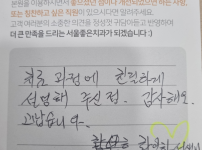 본원을 이용하시면서 좋았던 점이나 개선되었으면 하는 사항,
또는 칭찬하고 싶은 직원이 있으시다면 말해주세요.
고객 여러분의 소중한 의견을 정성껏 귀담아듣고 반영하여
더 큰 만족을 드리는 서울좋은치과가 되겠습니다 :)
치료 과정에 친절하게
설명해 주신점. 감사해요.
고맙습니다.